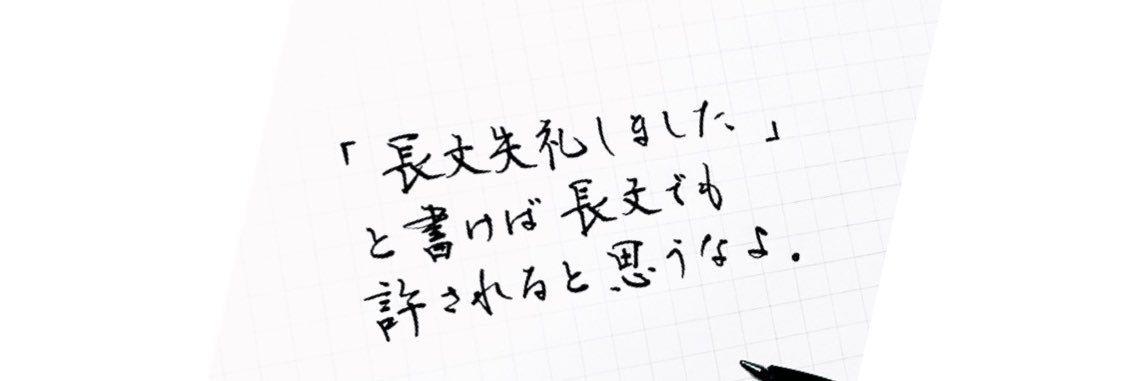 「長文失礼しました」
と書けば長文でも
許されると思うなよ.